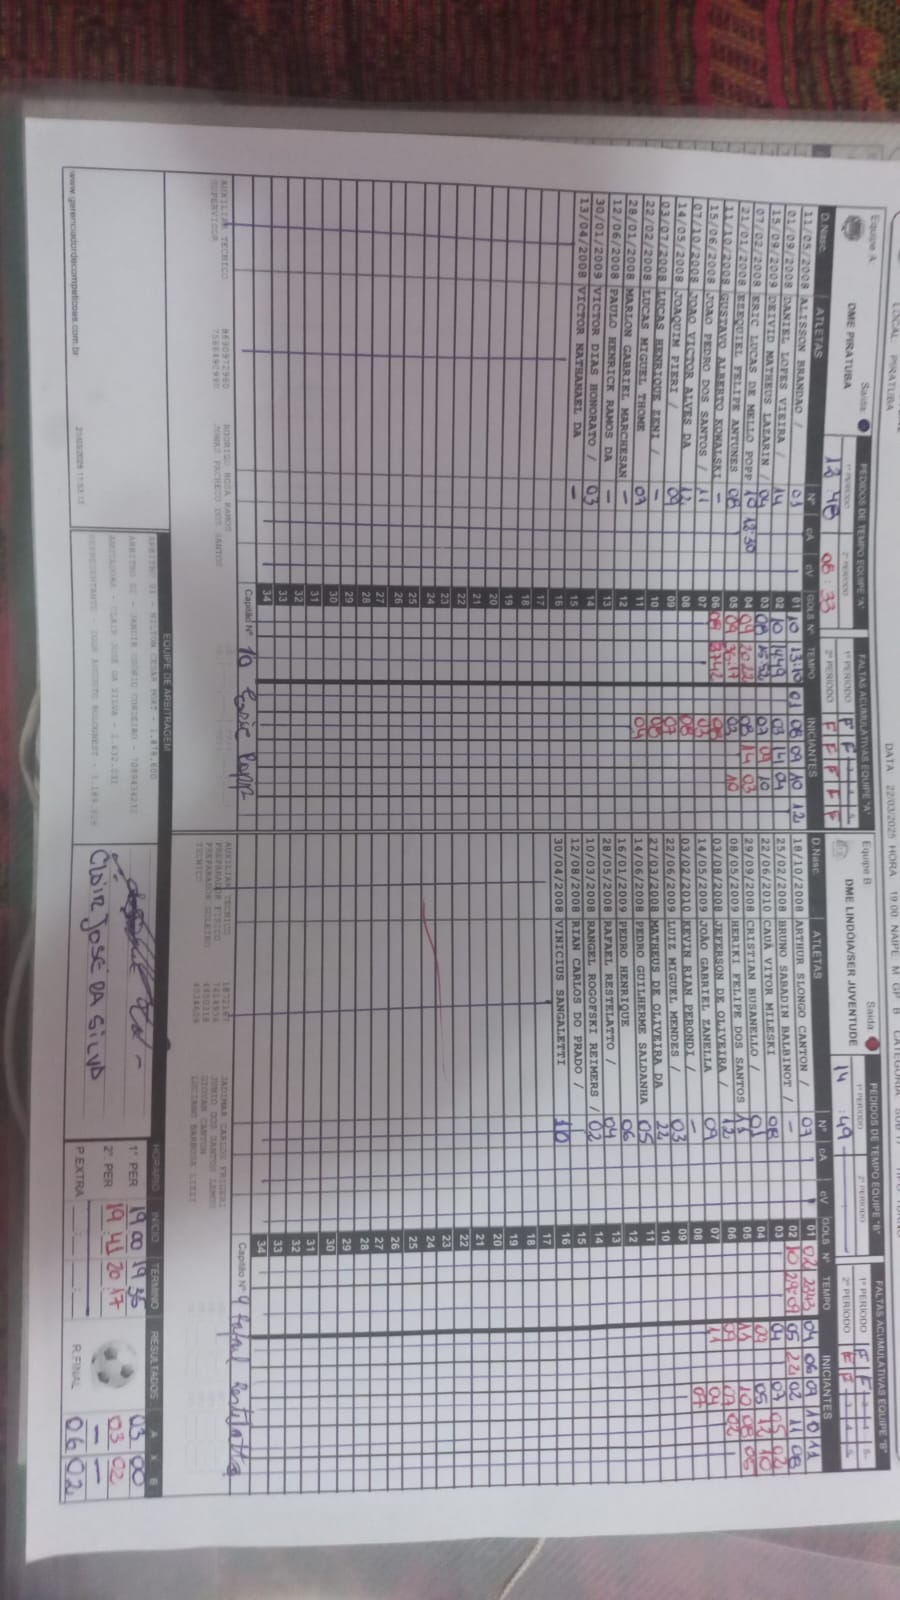 LOCAL PIRATUBA DATA 22/03/2025 HORA 19:00 NAIPE M GP B CATEGORIA SUB 17
Equipe A: Saída:
DME PIRATUBA
PEDIDOS DE TEMPO EQUIPE "A"
1º PERIODO 2º PERIODO
12 48 08:33
FALTAS ACUMULATIVAS EQUIPE "A"
1º PERIODO F F 3 4 5
2º PERIODO F F F F F
D.Nasc. ATLETAS Nº cA cV GOLS Nº TEMPO INICIANTES
11/05/2008 ALISSON BRANDAO / 01 01 10 13:10 01 08 09 10 12
01/09/2008 DANIEL LOPES VIEIRA / 14 02 10 14:49 03 14 04
15/09/2009 DEIVID MATHEUS LAZARIN / 04 03 08 15:52 07 09 10
07/02/2008 ERIC LUCAS DE MELLO POPP 10 12:30 04 09 20:22 08 14 03
21/01/2008 EZEQUIEL FELIPE ANTUNES 08 05 03 10
11/10/2008 GUSTAVO ALBERTO KOWALSKI - 06 08 37:42 08
15/06/2008 JOAO PEDRO DOS SANTOS / 11 07 03
07/10/2008 JOAO VICTOR ALVES DA 12 08 08
14/05/2008 JOAQUIM PIERI / 09 09 07
03/07/2008 LUCAS HENRIQUE ZENI / - 10 08
22/02/2008 LUCAS MIGUEL THOME 07 11 04
28/01/2008 MARLON GABRIEL MARCHESAN - 12
12/06/2008 PAULO HENRICK RAMOS DA - 13
30/01/2009 VICTOR DIAS HONORATO / 03 14
13/04/2008 VICTOR NATHANAEL DA - 15
16
17
18
19
20
21
22
23
24
25
26
27
28
29
30
31
32
33
34
AUXILIAR TECNICO RODRIGO ROSA RAMOS
SUPERVISOR JONAS PACHECO DOS SANTOS
Capitão Nº 10 Eric Popp
Equipe B: Saída:
DME LINDÓIA/SER JUVENTUDE
PEDIDOS DE TEMPO EQUIPE "B"
1º PERIODO 2º PERIODO
14:49
FALTAS ACUMULATIVAS EQUIPE "B"
1º PERIODO F F 3 4 5
2º PERIODO F F 3 4 5
D.Nasc. ATLETAS Nº cA cV GOLS Nº TEMPO INICIANTES
18/10/2008 ARTHUR SLONGO CANTON / 07 01 02 23:43 04 06 09 10 11
25/02/2008 BRUNO SABADIN BALBINOT / - 02 10 29:09 05 22 02 11 08
22/06/2010 CAUÃ VITOR MILESKI 08 03 04 07 05 02
29/09/2008 CRISTIAN BUSANELLO / 01 04 09 05 12 10
08/05/2009 HERIKI FELIPE DOS SANTOS 11 05 11 10 08 06
03/08/2008 JEFERSON DE OLIVEIRA / 12 06 09 07 02
14/05/2009 JOÃO GABRIEL ZANELLA 09 07 11 04
03/02/2010 KEVIN RIAN PERONDI / - 08 07
22/06/2009 LUIZ MIGUEL MENDES / 03 09
27/03/2008 MATHEUS DE OLIVEIRA DA 22 10
14/06/2008 PEDRO GUILHERME SALDANHA 05 11
16/01/2009 PEDRO HENRIQUE 06 12
28/05/2008 RAFAEL RESTELATTO / 04 13
10/03/2008 RANGEL ROGOFSKI REIMERS / 02 14
12/08/2008 RIAN CARLOS DO PRADO / 15
30/04/2008 VINICIUS SANGALETTI 10 16
17
18
19
20
21
22
23
24
25
26
27
28
29
30
31
32
33
34
AUXILIAR TECNICO
PREPARADOR FISICO
PREPARADOR GOLEIRO
TECNICO
Capitão Nº 4 Rafael Restelatto
EQUIPE DE ARBITRAGEM
CLAIR JOSÉ DA SILVA
HORARIO INICIO TERMINO
1º PER 19:00 19:36
2º PER 19:41 20:17
P.EXTRA
RESULTADOS A X B
03 00
03 02
- -
R.FINAL 06 02
www.gerenciadordecompeticoes.com.br